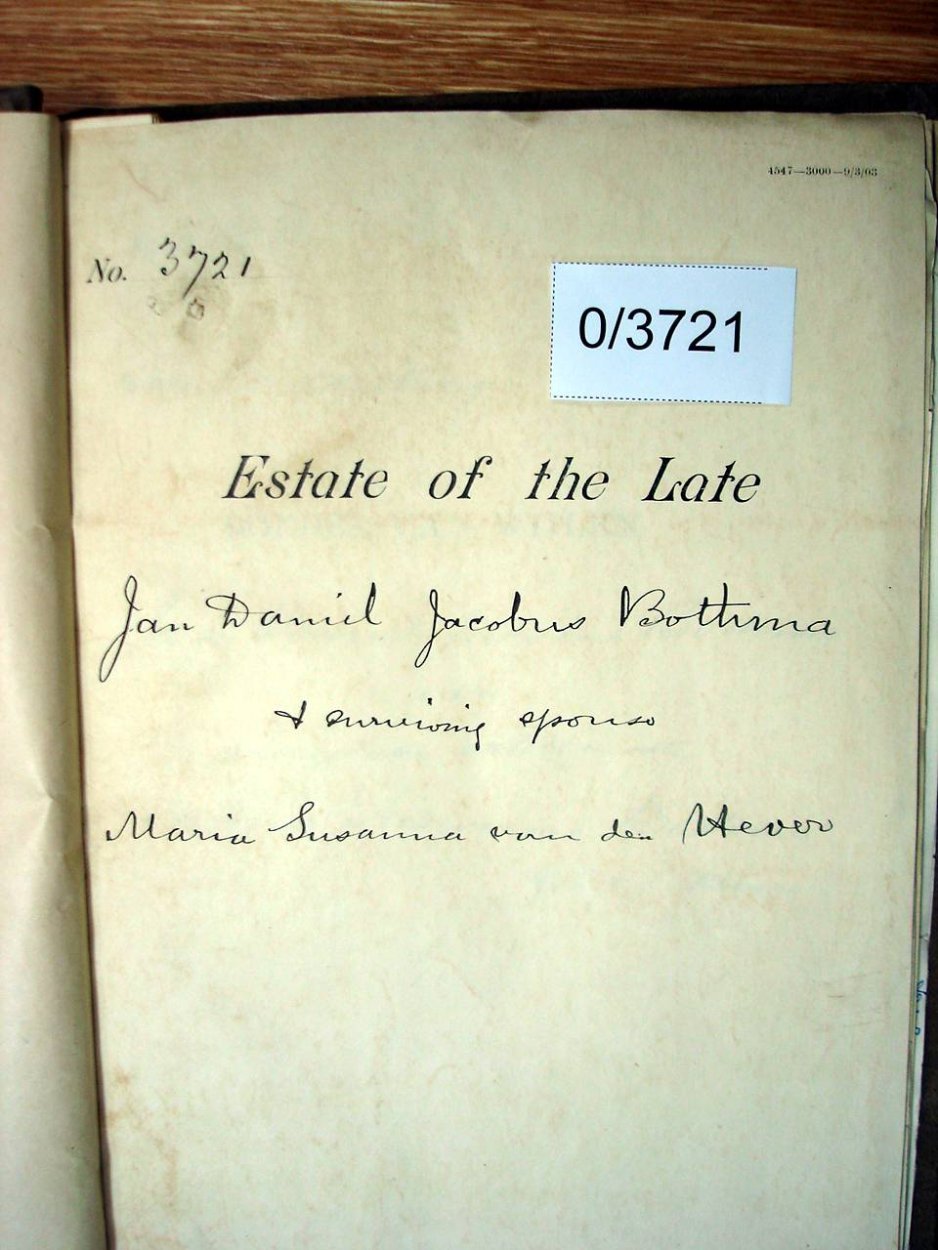 4547—3000—9/3/03
No. 3721
0/3721
Estate of the Late
Jan Daniel Jacobus Bothma
& surviving spouse
Maria Susanna van den Hever